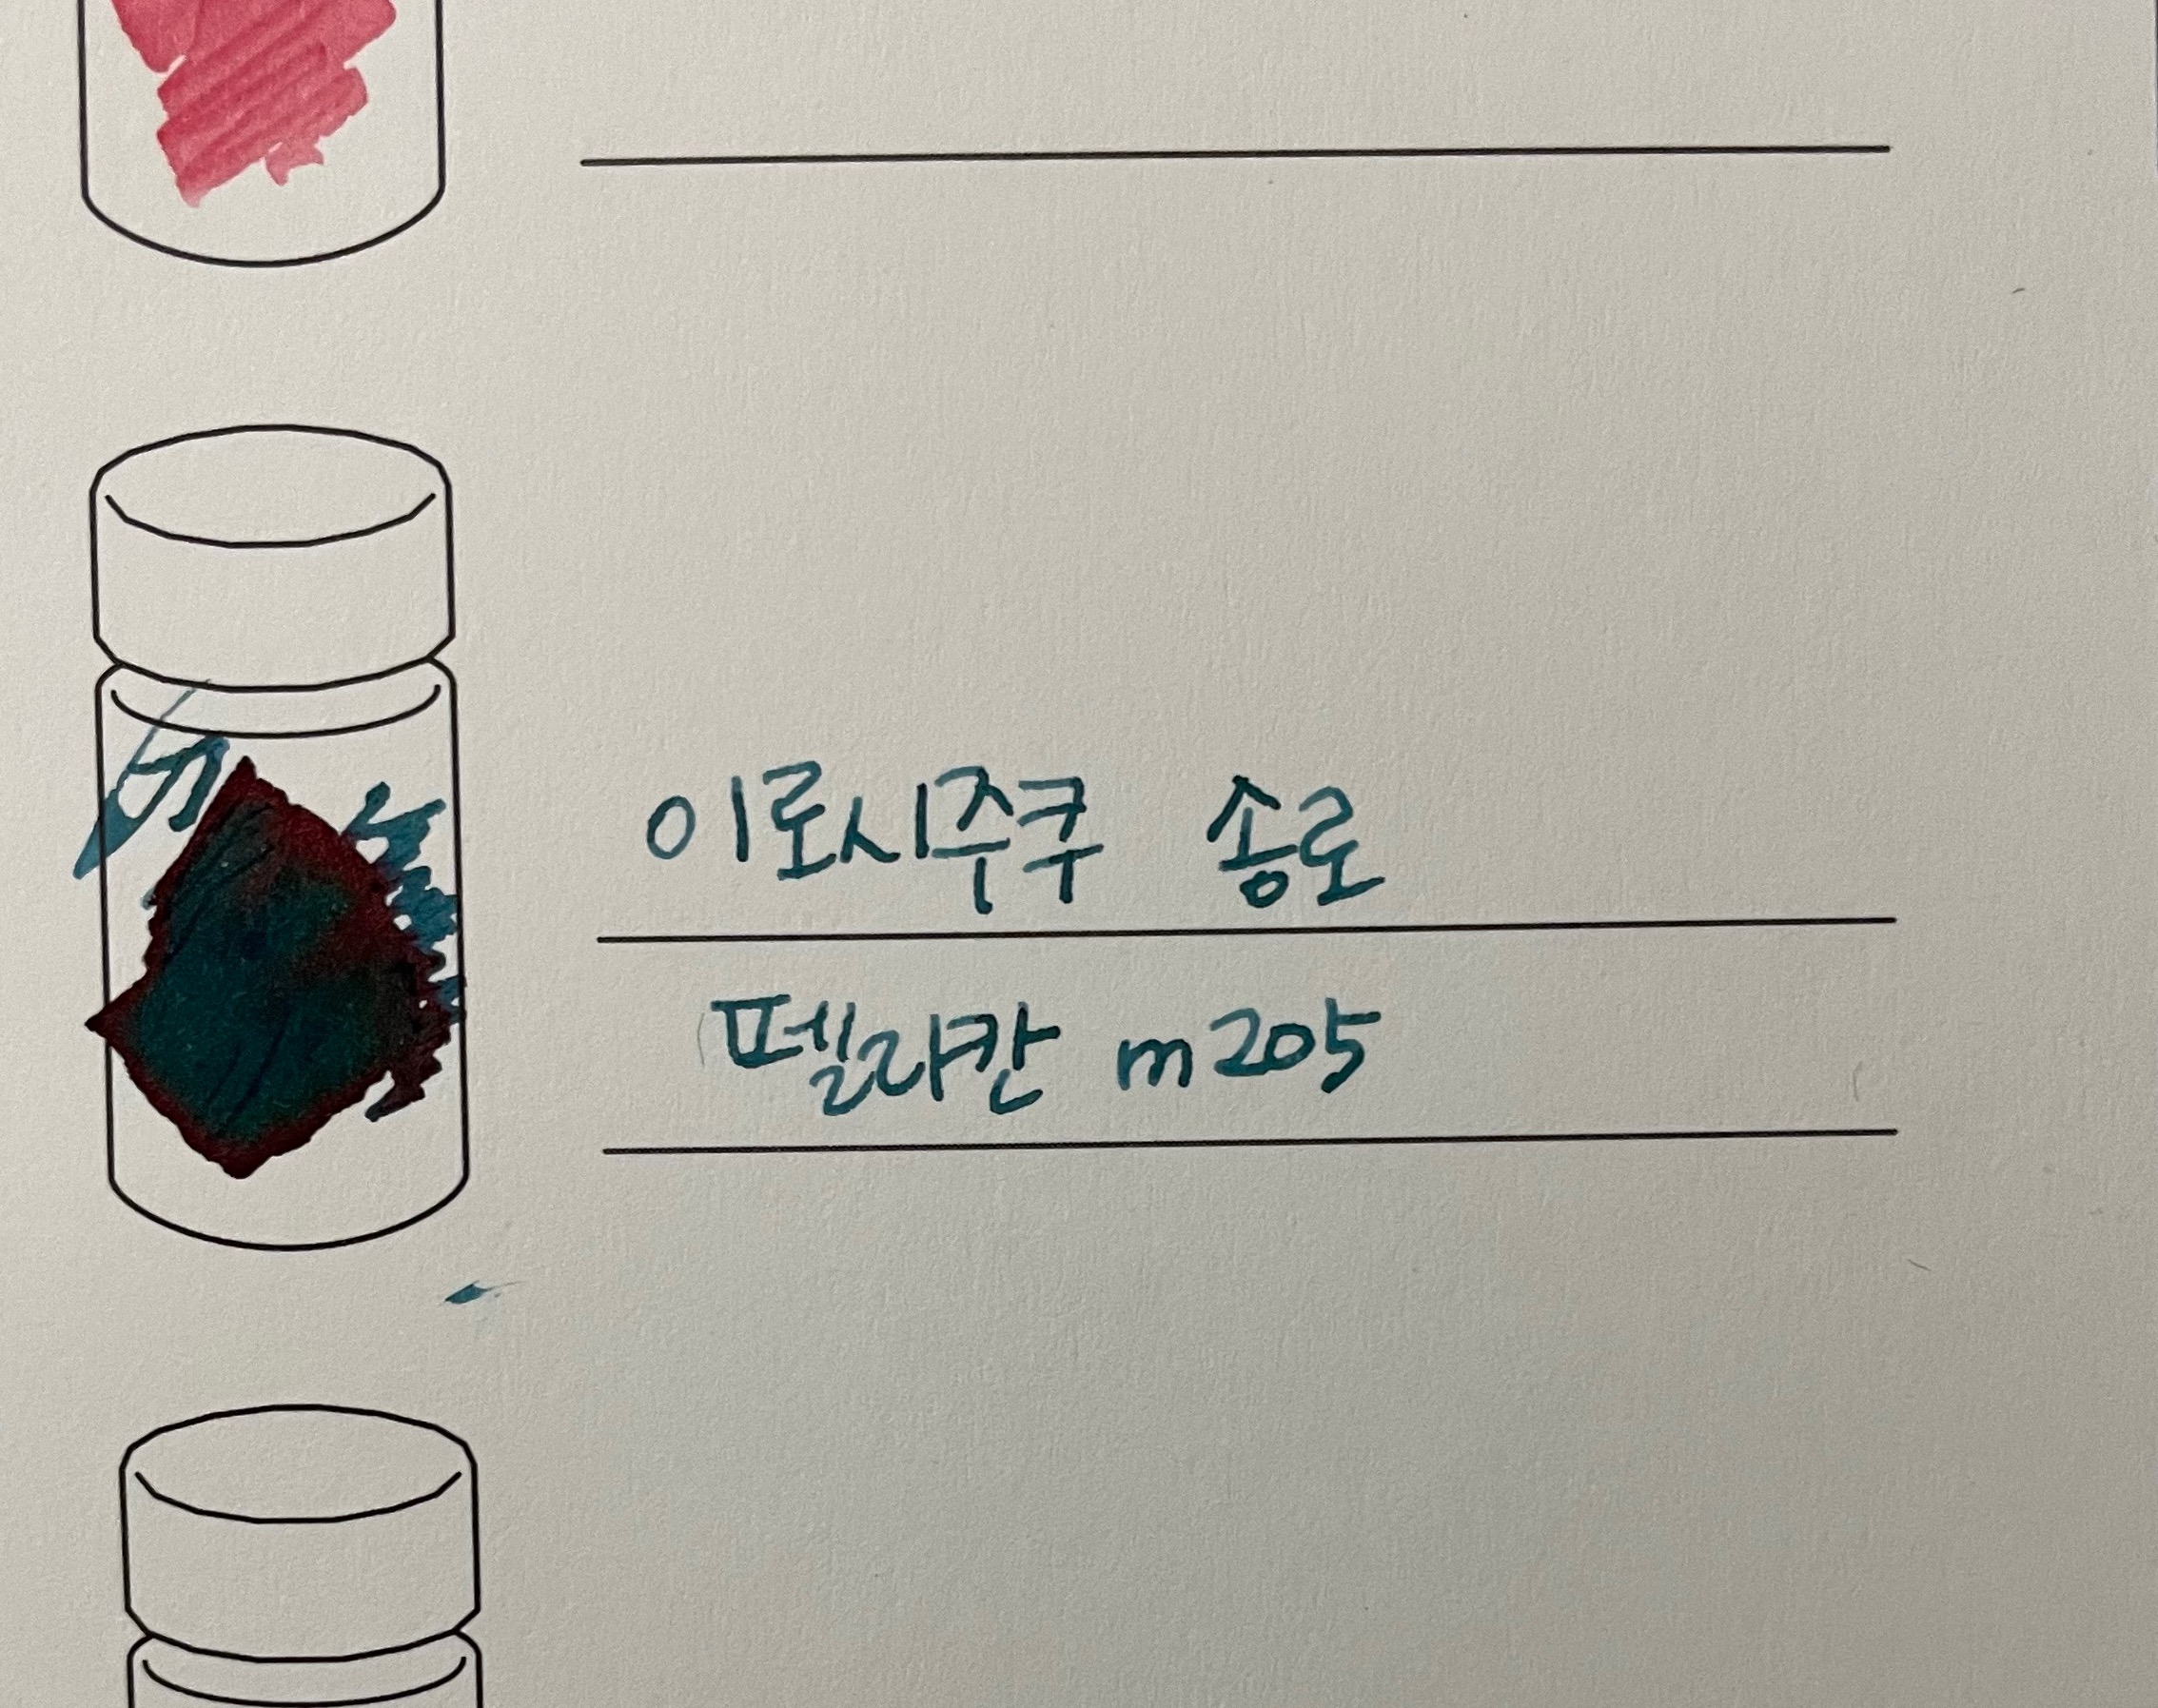 이로시주쿠 송로
펠리칸 m205